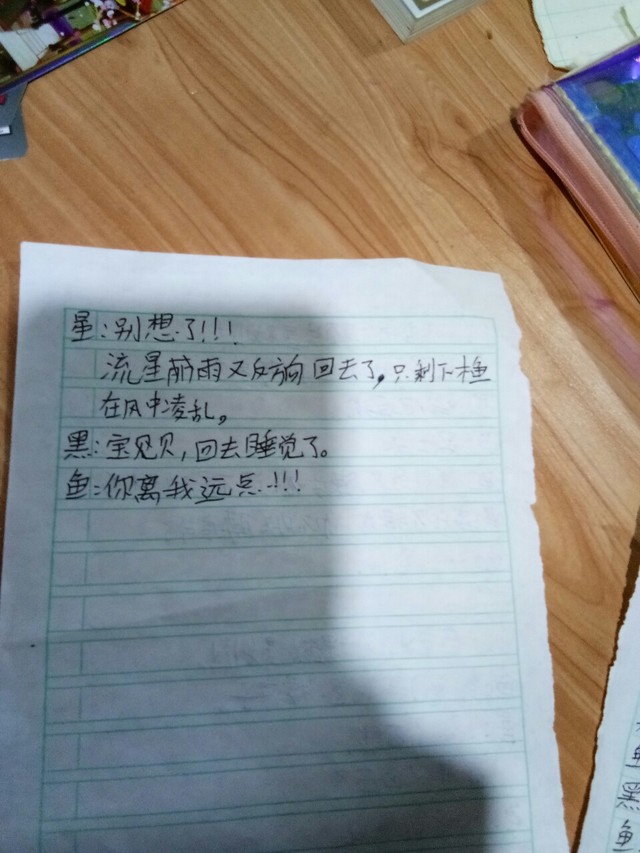 星:别想了!!!
流星前雨又反方向回去了,只剩下木鱼
在风中凌乱。
黑:宝见贝,回去睡觉了。
鱼:你离我远点!!!
黑
鱼